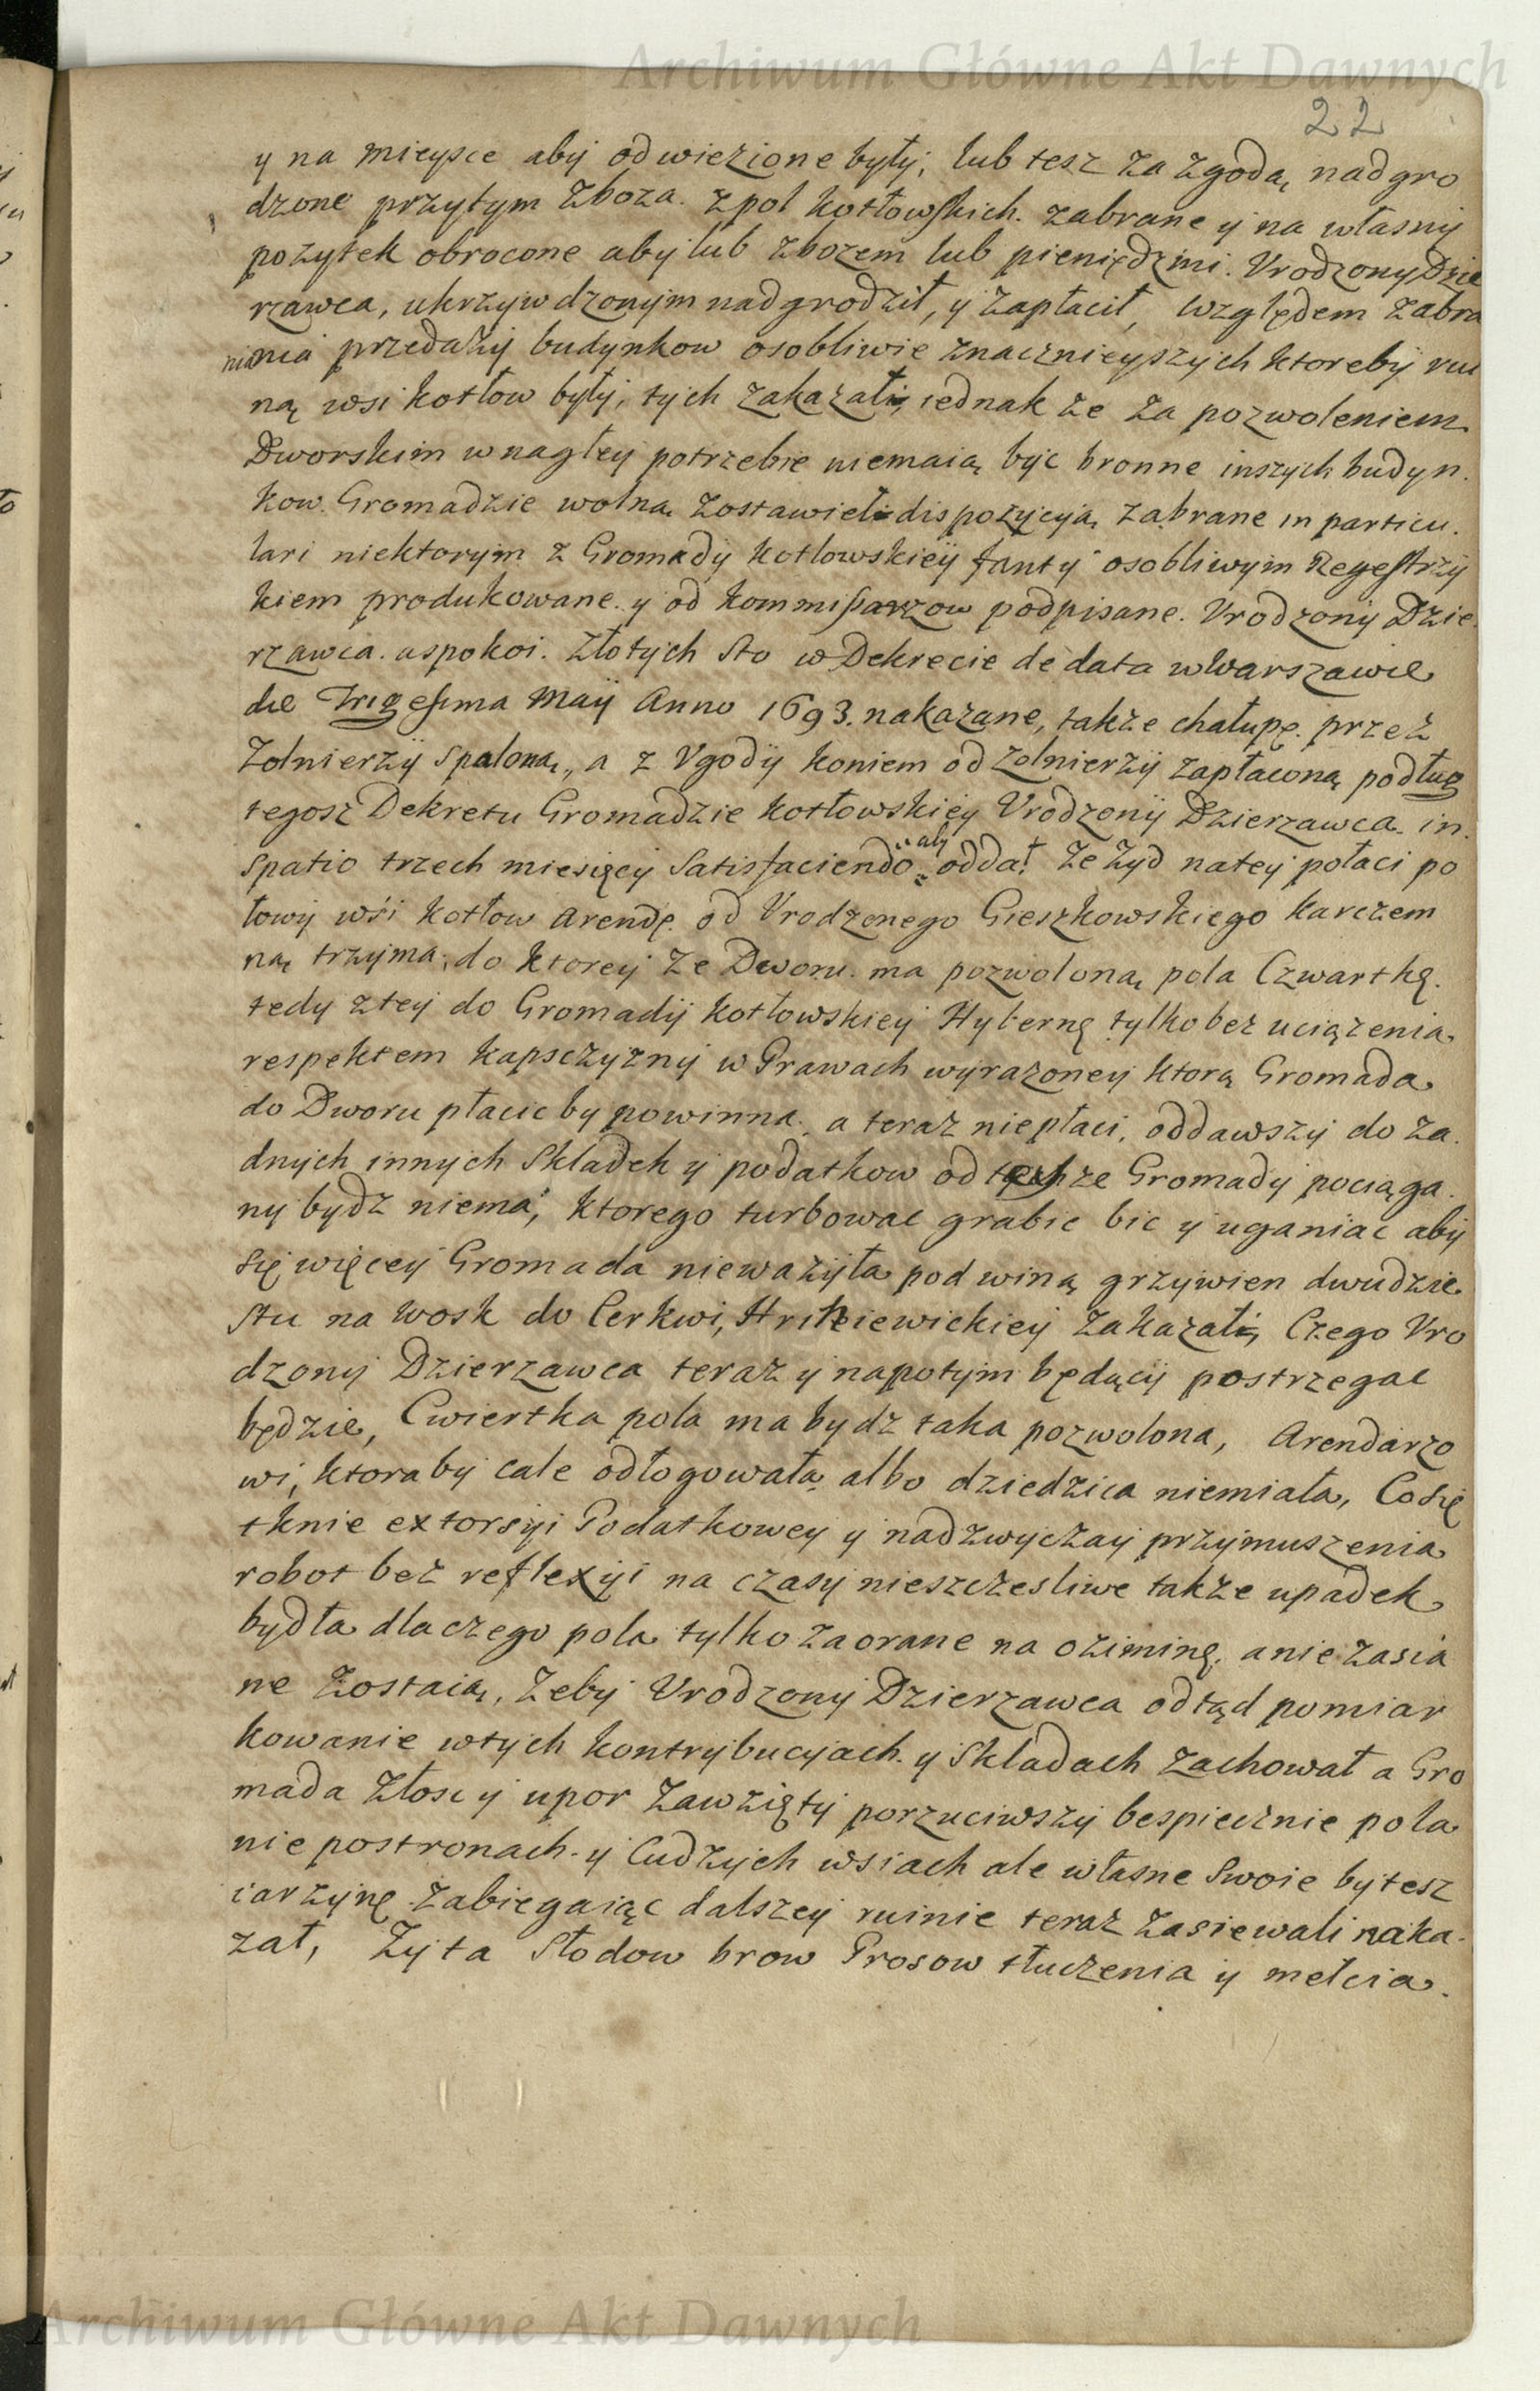 Archiwum Główne Akt Dawnych
22
y na mieysce aby odwiezione były, lub tesz za zgodą nadgro
dzone przytym zboza. z pol kotłowskich. zabrane y na własny
pozytek obrocone aby lub zbozem lub pieniędzmi. Vrodzony Dzie
rzawca, ukrzywdzonym nadgrodził, y zapłacił, względem zabra
nia przedazy budynkow osobliwie znacznieyszych ktoreby rui
ną wsi kotłow były, tych zakazali, iednak ze za pozwoleniem
Dworskim w nagłey potrzebie niemaią byc bronne inszych budyn.
kow. Gromadzie wolną zostawieli dispozycyią zabrane in particu.
lari niektorym z Gromady kotlowskiey fanty osobliwym Regestrzy
kiem produkowane. y od kommissarzow podpisane. Vrodzony Dzie.
rzawca. uspokoi. złotych sto w Dekrecie de data w Warszawie
die Trigesima Maij Anno 1693. nakazane, takze chałupę. przez
zolnierzy spaloną, a z Vgody koniem od zolnierzy zapłaconą podług
tegosz Dekretu Gromadzie kotłowskiey Vrodzony Dzierzawca. in.
aby
spatio trzech miesięcy satisfaciendo oddał. Ze Zyd natey połaci po
łowy wśi kotłow arendę. od Vrodzonego Gieszkowskiego karczem
ną trzyma, do ktorey ze Dworu. ma pozwoloną pola Czwartkę.
tedy ztey do Gromady kotłowskiey Hybernę tylko bez uciązenia
respektem kapsczyzny w Prawach wyrazoney ktorą Gromada
do Dworu płacic by powinna. a teraz niepłaci, oddawszy do za.
dnych innych składek y podatkow od teyze Gromady pociąga.
ny bydz niema, ktorego turbowac grabic bic y uganiac aby
się więcey Gromada niewazyła pod winą grzywien dwudzie
stu na wosk do Cerkwi, Hrikiewickiey zakazali, Czego Vro
dzony Dzierzawca teraz y napotym będący postrzegac
będzie, Cwiertka pola ma bydz taka pozwolona, Arendarzo
wi, ktoraby cale odłogowała albo dziedzica niemiała, Co się
tknie extorsyi Podatkowey y nadzwyczay przymuszenia
robot bez reflexyi na czasy nieszczesliwe takze upadek
bydła dlaczego pola tylko zaorane na oziminę. anie zasia
ne zostaią, zeby Vrodzony Dzierzawca odtąd pomiar
kowanie wtych kontrybucyach. y składach zachował a Gro
mada złosc y upor zawzięty porzuciwszy bespiecznie pola
nie postronach. y Cudzych wsiach ale własne swoie by tesz
iarzynę zabiegaiąc dalszey ruinie teraz zasiewali naka.
zał, Zyta Słodow brow Prosow tłuczenia y mełcia.
Archiwum Główne Akt Dawnych